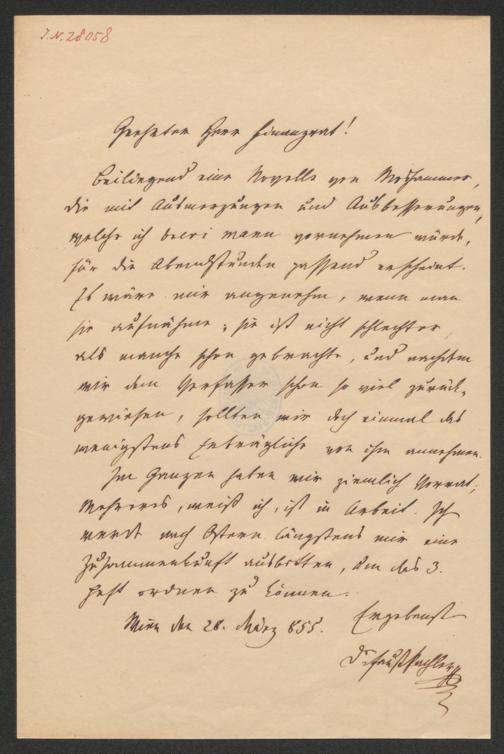 J.N. 28058
Geehrter Herr Finanzrat!
Beiliegend eine Novelle von Meßhammer,
die mit Ausmerzungen und Ausbesserungen,
welche ich brevi manu vornehmen würde,
für die Abendstunden passend erscheint.
Es wäre mir angenehm, wenn man
sie aufnähme; sie ist nicht schlechter,
als manche schon gebrachte, und nachdem
wir dem Verfasser schon so viel zurück-
gewiesen, sollten wir doch einmal das
wenigstens Erträgliche von ihm annehmen.
Im Ganzen haben wir ziemlich Vorrat;
Mehreres, weiß ich, ist in Arbeit. Ich
werde nach Ostern längstens mir eine
Zusammenkunft ausbitten, um das 3.
Heft ordnen zu können.
Wien den 28. März 855. Ergebenst
Dr Faust Pachler